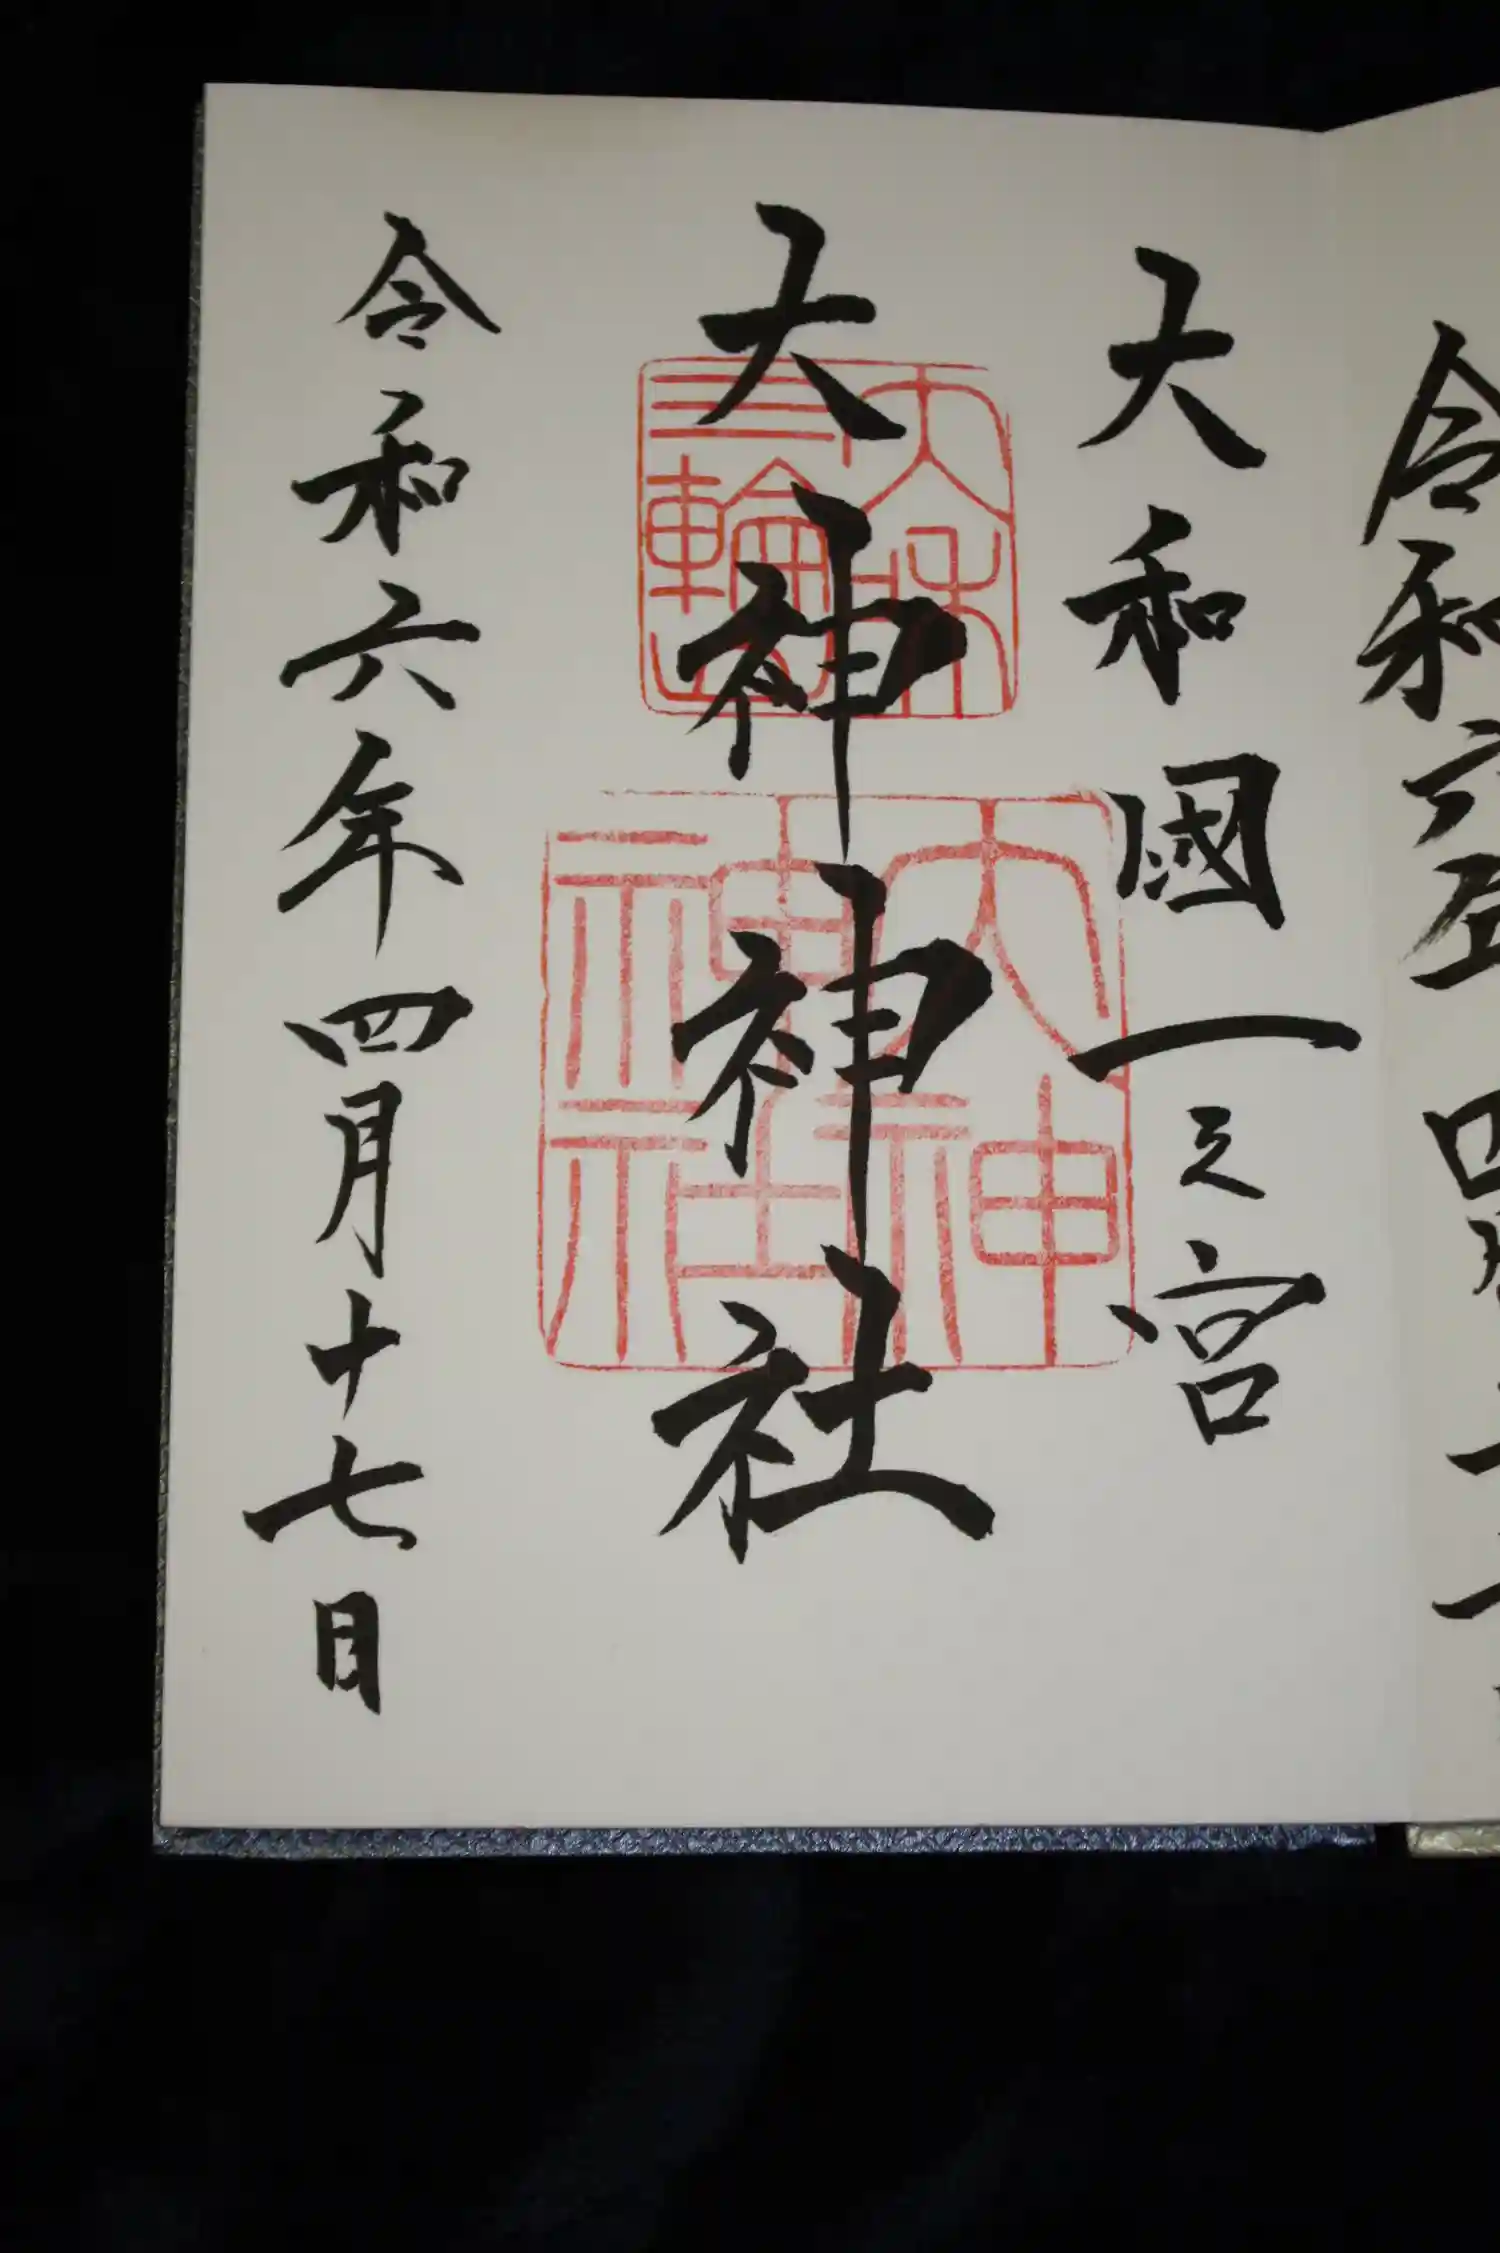 令和六年四月
大和國一之宮
大神神社
大和
三輪山
大神
神社
令和六年四月十七日